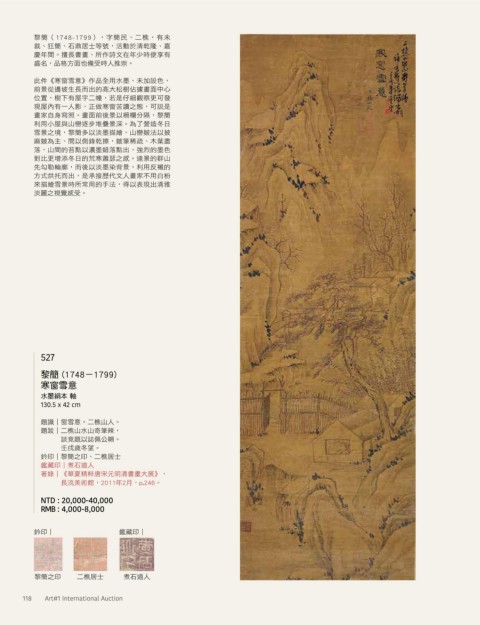 黎簡（1748-1799），字簡民、二樵，有未
裁、狂簡、石鼎居士等號，活動於清乾隆、嘉
慶年間。擅長書畫，所作詩文在年少時便享有
盛名，品格方面也備受時人推崇。
此件《寒窗雪意》作品全用水墨、未加設色，
前景從邊坡生長而出的高大松樹佔據畫面中心
位置，樹下有屋宇二幢，若是仔細觀察更可發
現屋內有一人影，正做寒窗苦讀之態，可說是
畫家自身寫照。畫面前後景以柵欄分隔，黎簡
利用小屋與山巒逐步堆疊景深。為了營造冬日
雪景之境，黎簡多以淡墨描繪，山巒皴法以披
麻皴為主，間以側鋒乾擦，皴筆稀疏，木葉盡
落，山間的苔點以濃墨錯落點出，強烈的墨色
對比更增添冬日的荒寒蕭瑟之感，遠景的群山
先勾勒輪廓，而後以淡墨染背景，利用反襯的
方式烘托而出，是承接歷代文人畫家不用白粉
來描繪雪景時所常用的手法，得以表現出清雅
淡麗之視覺感受。
寒窓雪意
527
黎簡（1748－1799）
寒窗雪意
水墨絹本 軸
130.5 x 42 cm
題識｜窗雪意。二樵山人。
題跋｜二樵山水山奇筆辣，
談克題以誌佩公朝。
壬戌歲冬望。
鈐印｜黎簡之印、二樵居士
鑑藏印｜煮石道人
著錄｜《華夏精粹唐宋元明清書畫大展》，
長流美術館，2011年2月，p.246。
NTD : 20,000-40,000
RMB : 4,000-8,000
鈐印｜
鑑藏印｜
黎簡之印
二樵居士
煮石道人
118 Art#1 International Auction